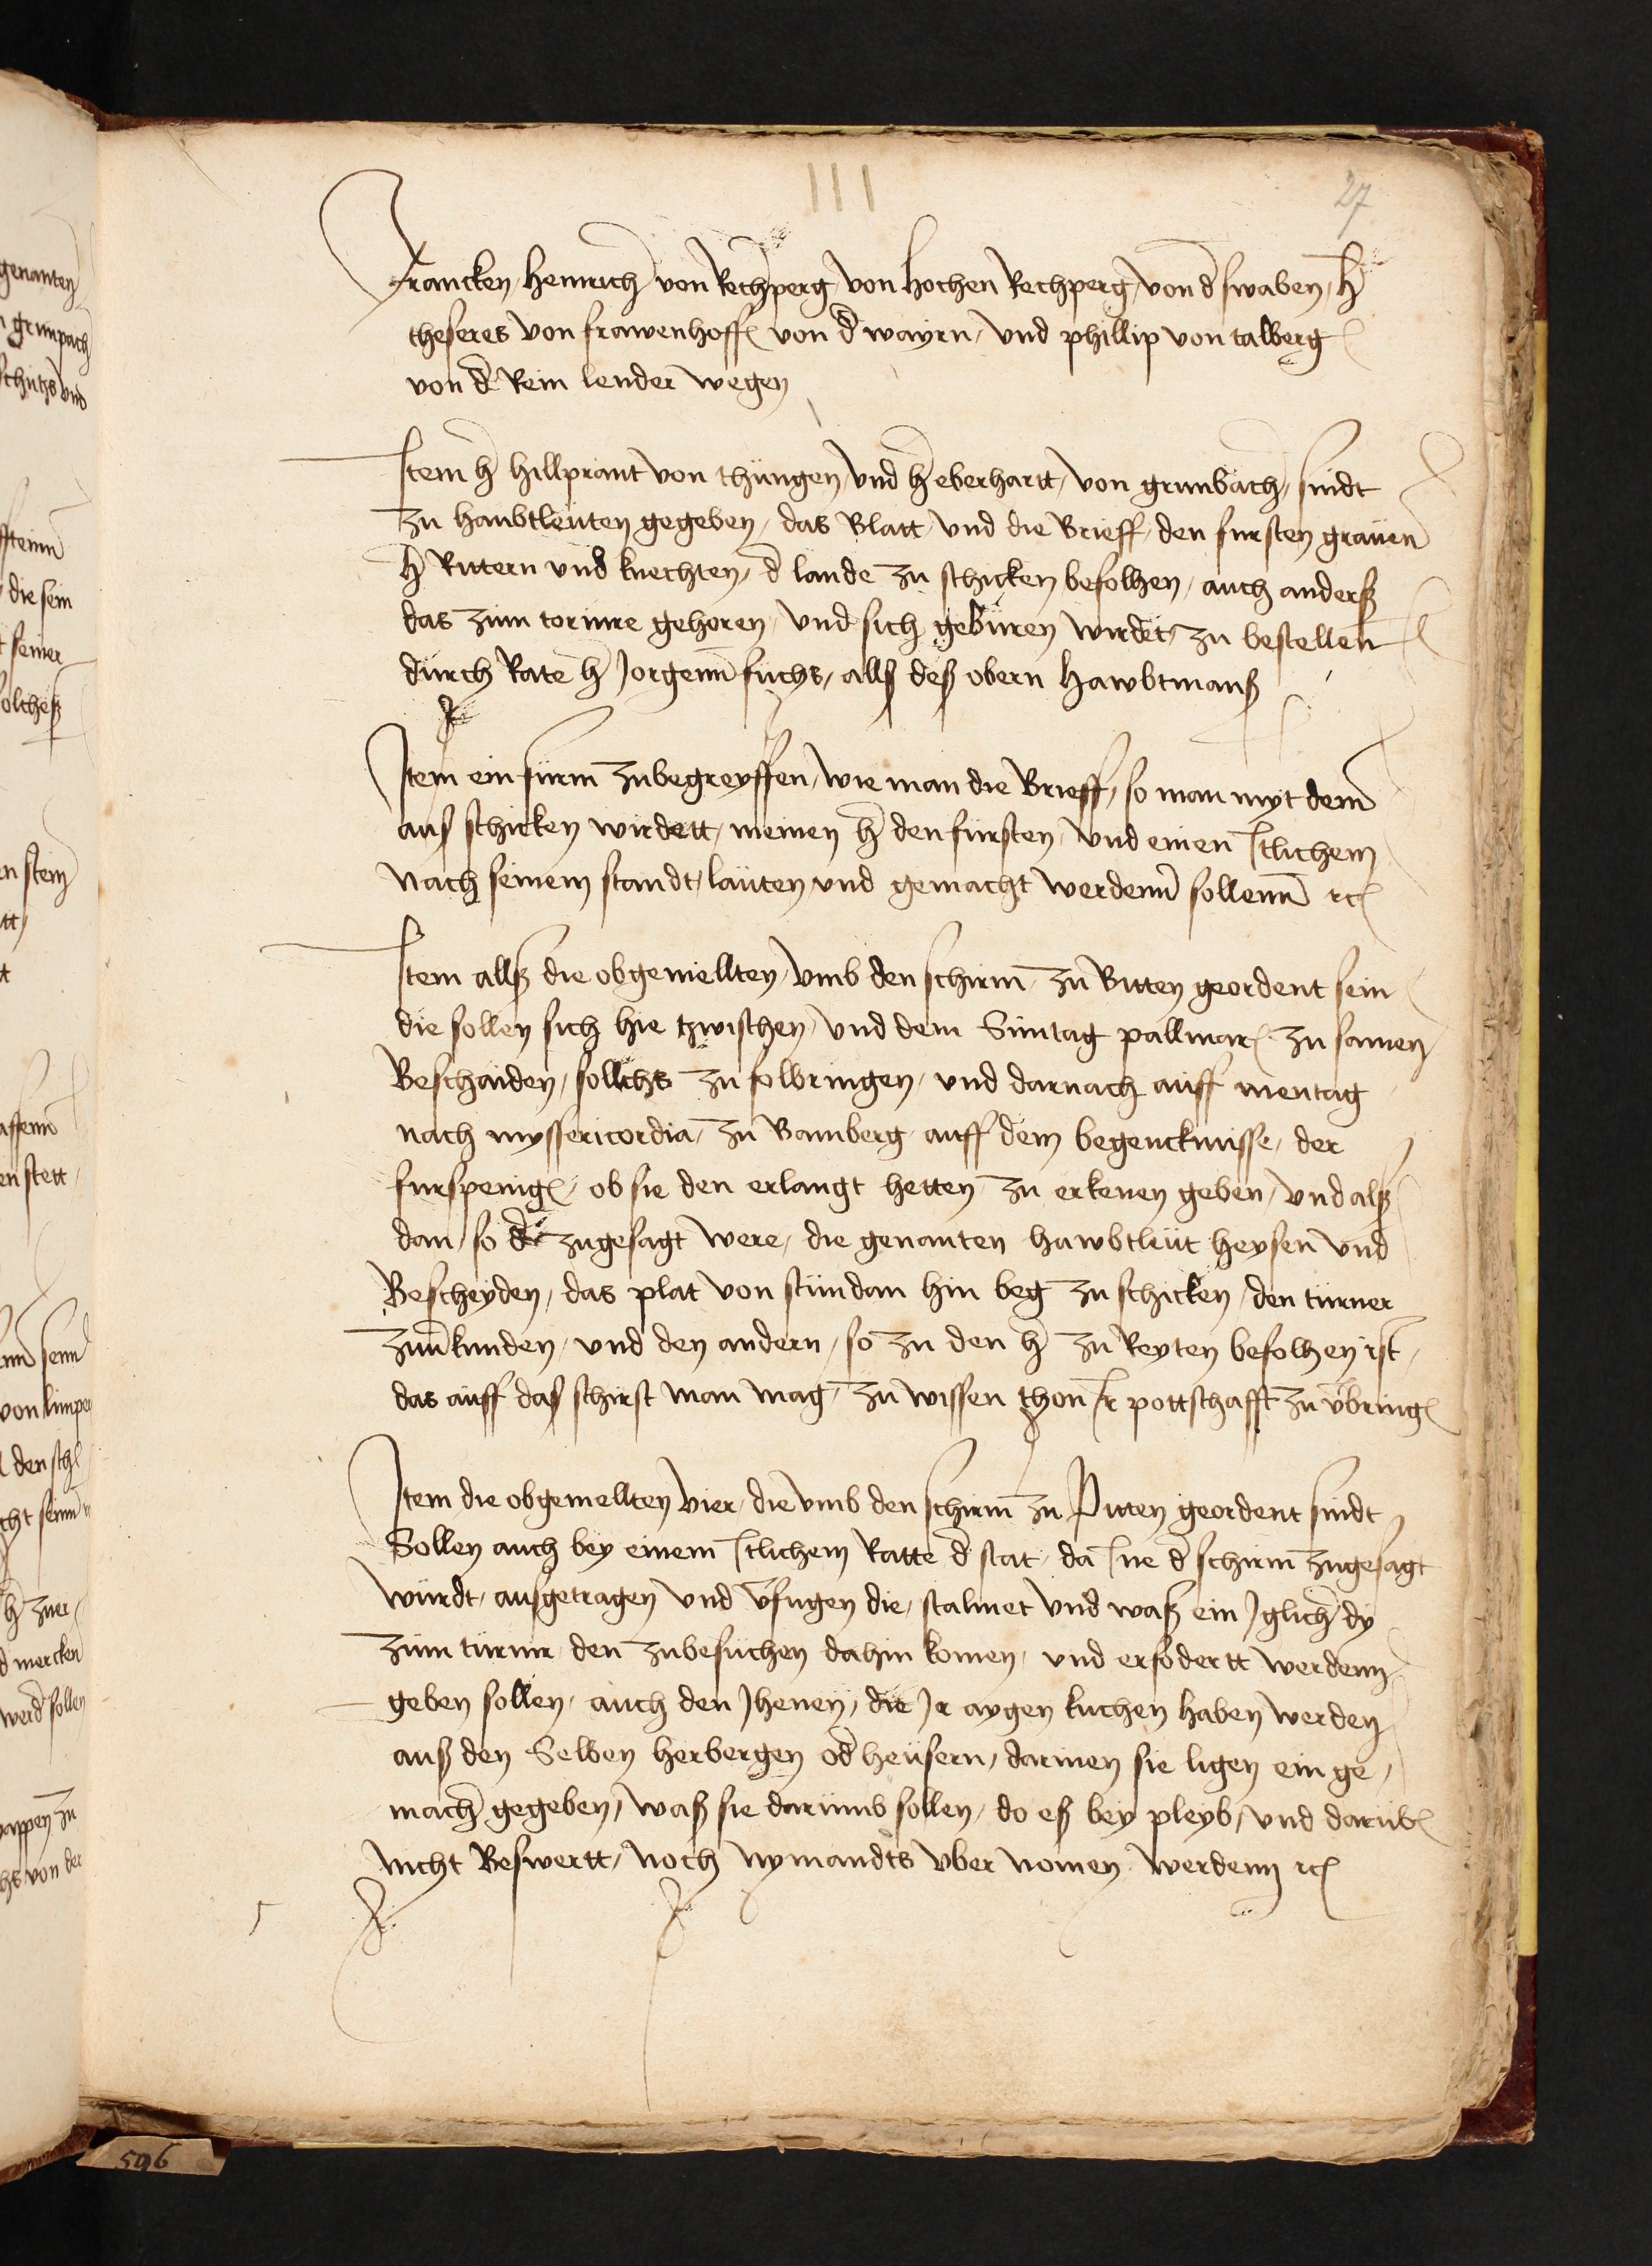 III
27
Francken, Heinrich von Rechperg, von Hochen Rechperg, von d̄ swaben, h̄
theseres von frawenhoff von d̄ bayrn, und phillip von talberg
von d̄ Rein lender wegen
Item h̄ hillprant von thüngen, und h̄ eberhartt, von grunbach, sindt
zu haubtleuten gegeben, das Blatt, und die Brieff, den fursten grauen
h̄ Rittern und knechten, d̄ lande zu schicken befolhen, auch anderß
das zum tornire gehoren, und sich gebüren wirdet, zu bestellen
durch Rate h̄ Jorgenn fuchs, allß deß obern Hawbtmanß
Item ein furm zubegreyffen, wie man die Brieff, so man myt dem
auß schicken wirdett, meinen h̄ den fürsten, und einen Itlichem
nach seinem standt, lauten, und gemacht werdenn sollenn ꝛc
Item allß die obgemellten, umb den schirm, zu Bitten geordent sein
die sollen sich hie tzwischen, und dem Suntag pallmar zu samen
Beschaiden, sollichs zu folbringen, und darnach auff mentag
nach myssericordia, zu Bamberg, auff dem begencknisse, der
furspenig, ob sie den erlangt hetten, zu erkenen geben, und alß
dan, so d̄ zugesagt were, die genanten hawbtleut heysen und
Bescheyden, das plat von stundan hin beg zu schicken, den turner
zuuerkunden, und den andern, so zu den h̄ zu Reyten befolhen ist,
das auff das schirst man mag, zu wissen thon, Ir pottschafft zu v̄bring
Item die obgemellten vier, die umb den schirm zu Piten geordent sindt
Sollen auch bey einem Itlichem Ratte d̄ stat, da Ine d̄ schirm zugesagt
würdt, ausgetragen und v̄fugen die, stalmet und waß ein Jglicher dy
zum turnir, den zubesuchen dahin komen, und erfodertt werdenn
geben sollen, auch den Jhenen, die Jr aygen kuchen haben werden
auß den Selben herbergen od̄ heusern, darinen sie ligen ein ge,
mach gegeben, waß sie darumb sollen, do eß bey pleyb, und darub
nicht Beswertt, noch nymandts vber nomen werdenn ꝛc
genanten
n grunpach
schutzs und
die sein
seiner
solcheß
en stein
en stett
von limper
den sch
zuer
mercken
werd sollen
wappen zu
von der
596